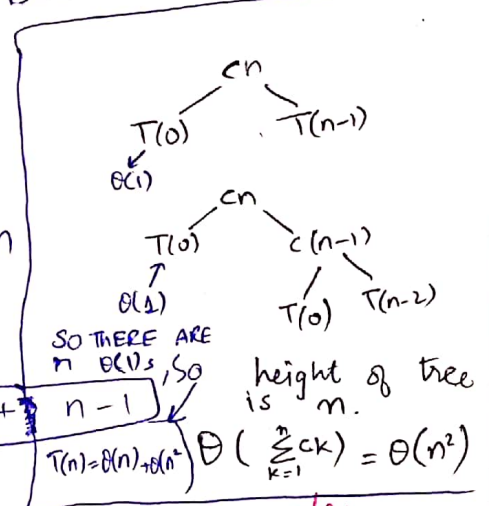 cn
T(0) T(n-1)
θ(1)
cn
T(0) c(n-1)
θ(1) T(0) T(n-2)
SO THERE ARE
n θ(1)s, SO
height of tree
is n.
+ n-1
T(n)=θ(n)+θ(n²) θ(∑ₖ₌₁ⁿ ck) = θ(n²)